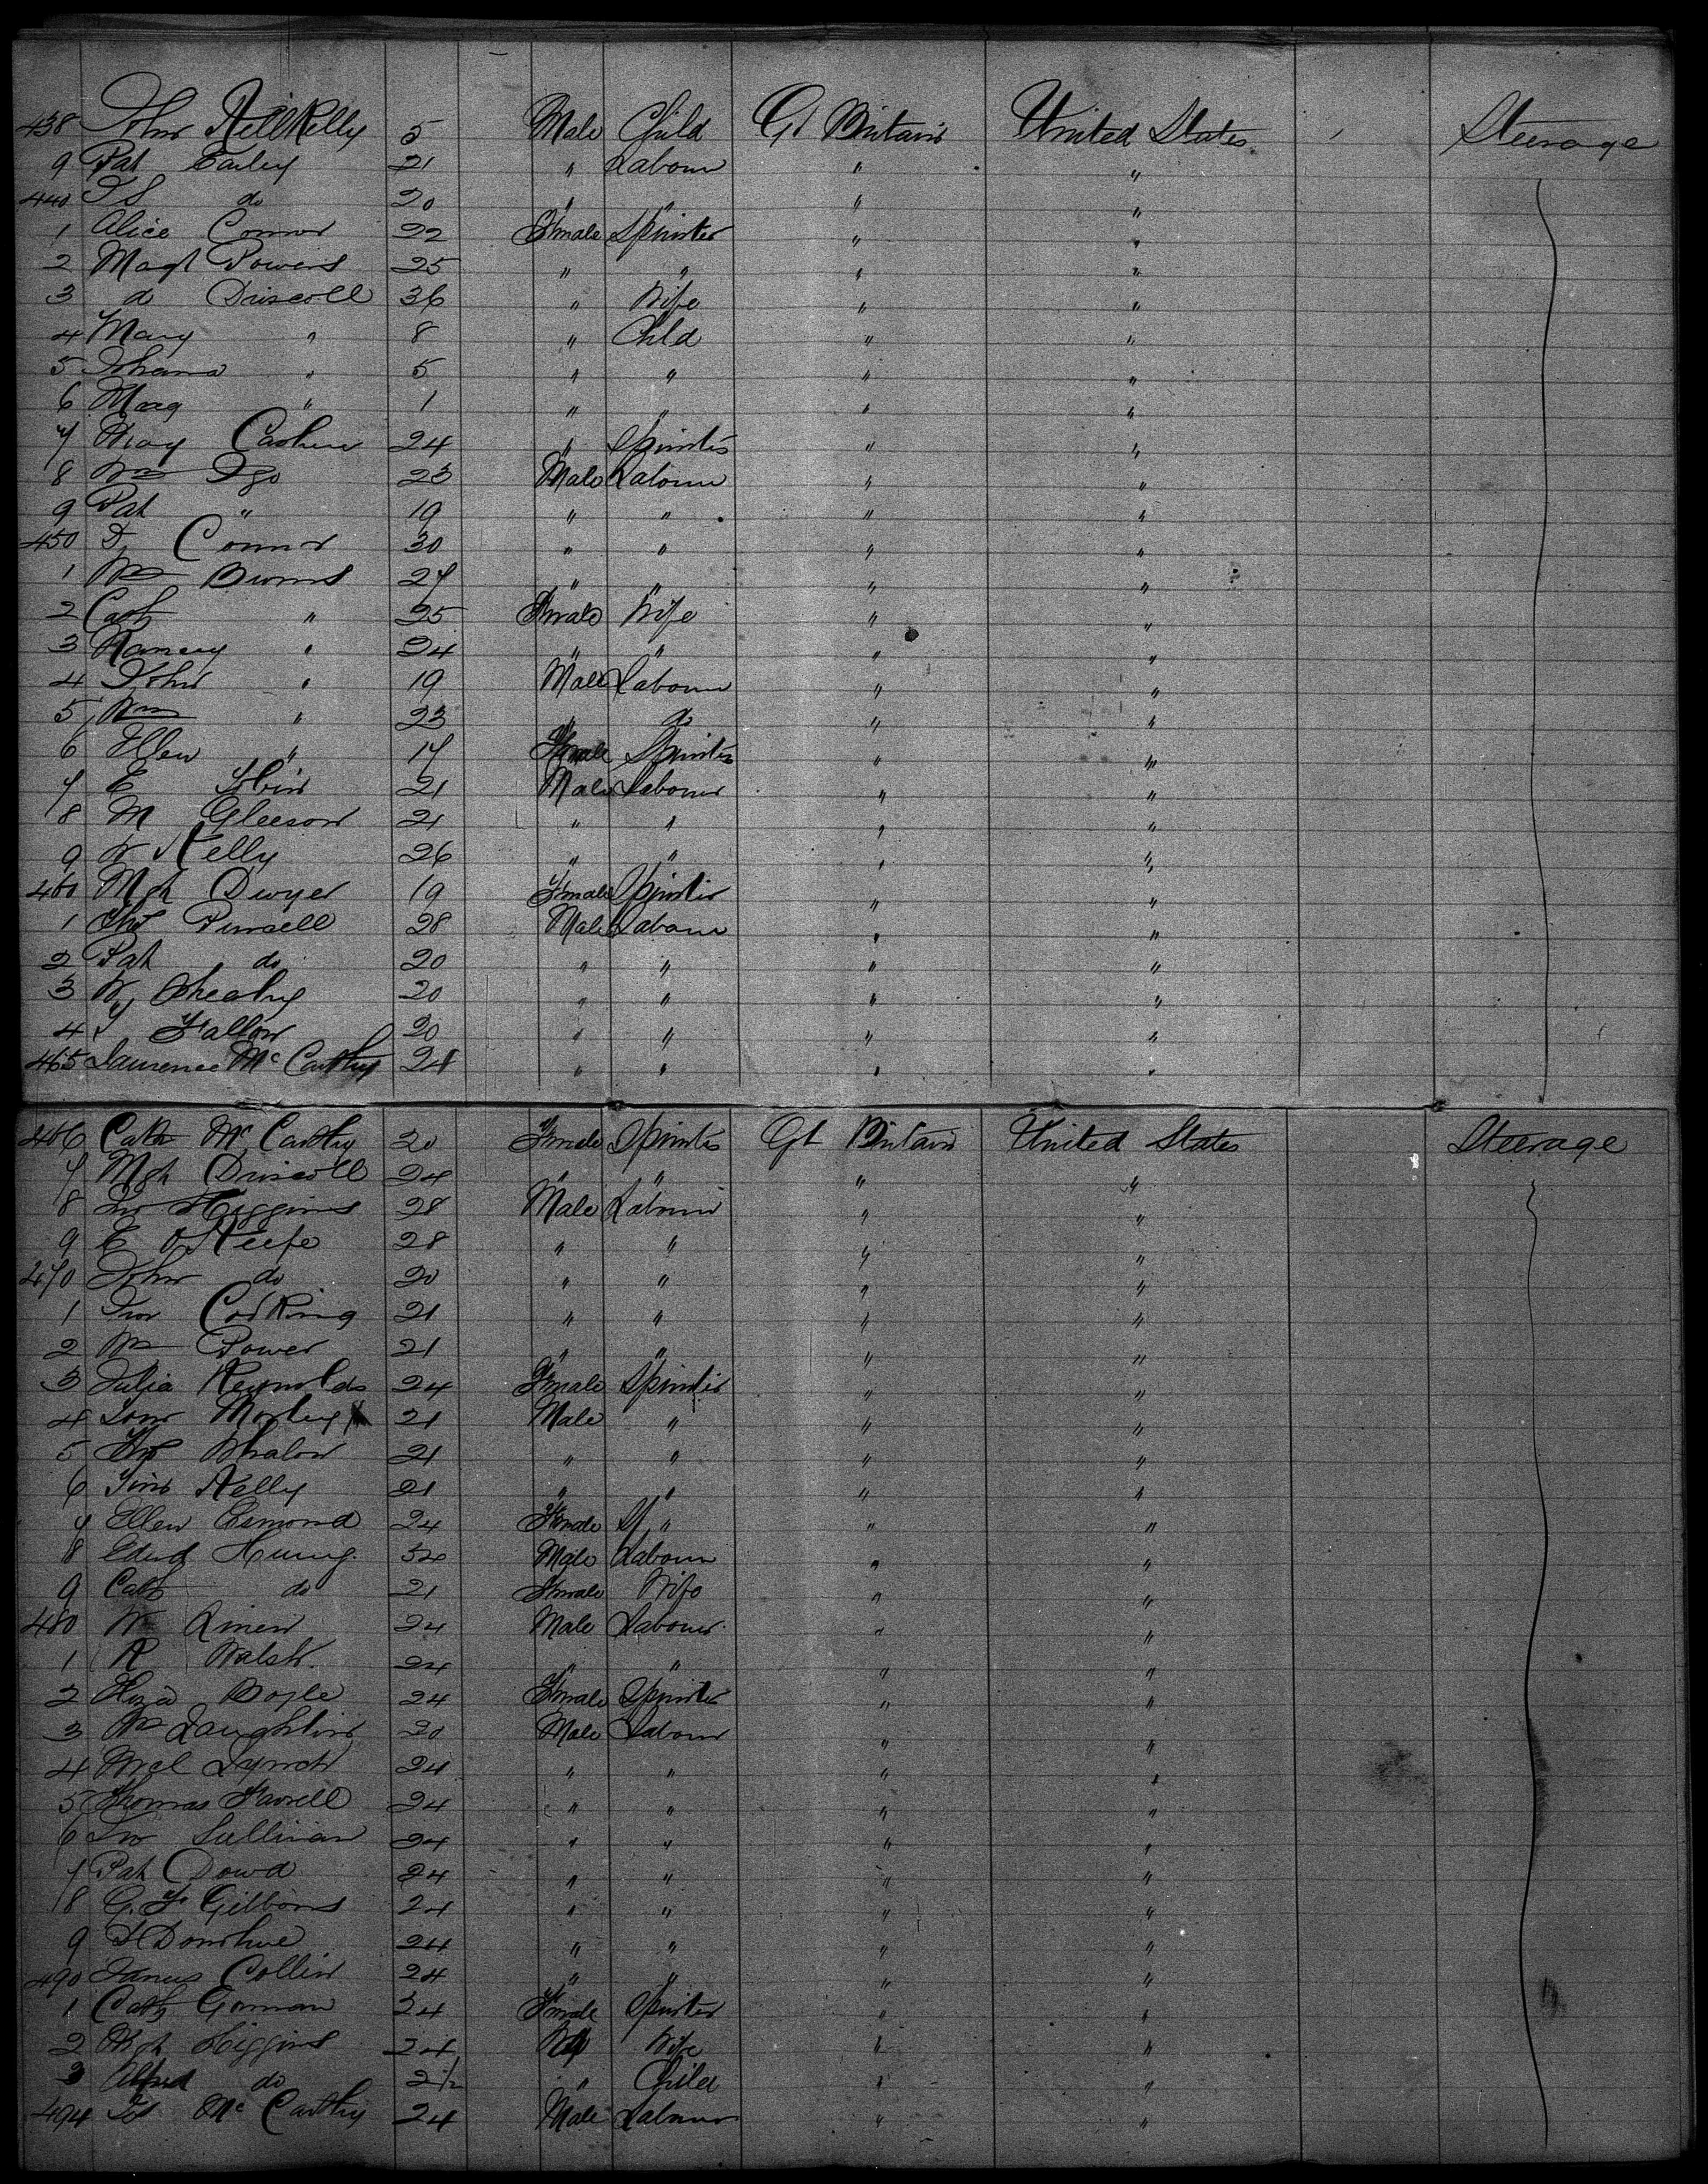 438 John Kelly 5 Male Child Gt Britain United States Steerage
9 Pat Earley 21 " Labour " "
440 do 20 " " " "
1 Alice Connor 22 Female Spinster " "
2 Magt Powers 25 " " " "
3 do Driscoll 36 " Wife " "
4 Mary " 8 " Child " "
5 Johana " 5 " " " "
6 Marg " 1 " " " "
7 May 24 " Spinster " "
8 Wm Igo 23 Male Labour " "
9 Pat " 19 " " " "
450 D Connor 30 " " " "
1 Wm Burns 27 " " " "
2 Cath " 25 Female Wife " "
3 Nancy " 24 " " " "
4 John " 19 Male Labour " "
5 Wm " 23 " do " "
6 Ellen " 17 Female Spinster " "
7 E Tobin 21 Male Labour " "
8 M Gleeson 21 " " " "
9 W Kelly 26 " " " "
460 Mgt Dwyer 19 Female Spinster " "
1 Purcell 28 Male Labour " "
2 Pat do 20 " " " "
3 W Sheahy 20 " " " "
4 Fallon 20 " " " "
465 Laurence McCarthy 24 " " " "
466 Cath McCarthy 20 Female Spinster Gt Britain United States Steerage
7 Mgt Driscoll 24 " " " "
8 Jno Higgins 28 Male Labour " "
9 E O'Keefe 28 " " " "
470 John do 20 " " " "
1 Jno 21 " " " "
2 Wm Power 21 " " " "
3 Julia Reynolds 24 Female Spinster " "
4 Morley 21 Male " " "
5 Whalon 21 " " " "
6 Tim Kelly 21 " " " "
7 Ellen Esmond 24 Female Sp " " "
8 Edwd Male Labour " "
9 Cath do 21 Female Wife " "
480 W 24 Male Labour " "
1 R Walsh 24 " " " "
2 Eliza Boyle 24 Female Spinster " "
3 Wm Laughlin 20 Male Labour " "
4 Lynch 24 " " " "
5 Thomas Farrell 24 " " " "
6 Jno Sullivan 24 " " " "
7 Pat Dowd 24 " " " "
8 G. F Gibbons 24 " " " "
9 Donohue 24 " " " "
490 James Collin 24 " " " "
1 Cath Gorman 24 Female Spinster " "
2 Mgt Higgins 24 Wife " "
3 Alfred do 2½ " Child " "
494 McCarthy 24 Male Labour " "